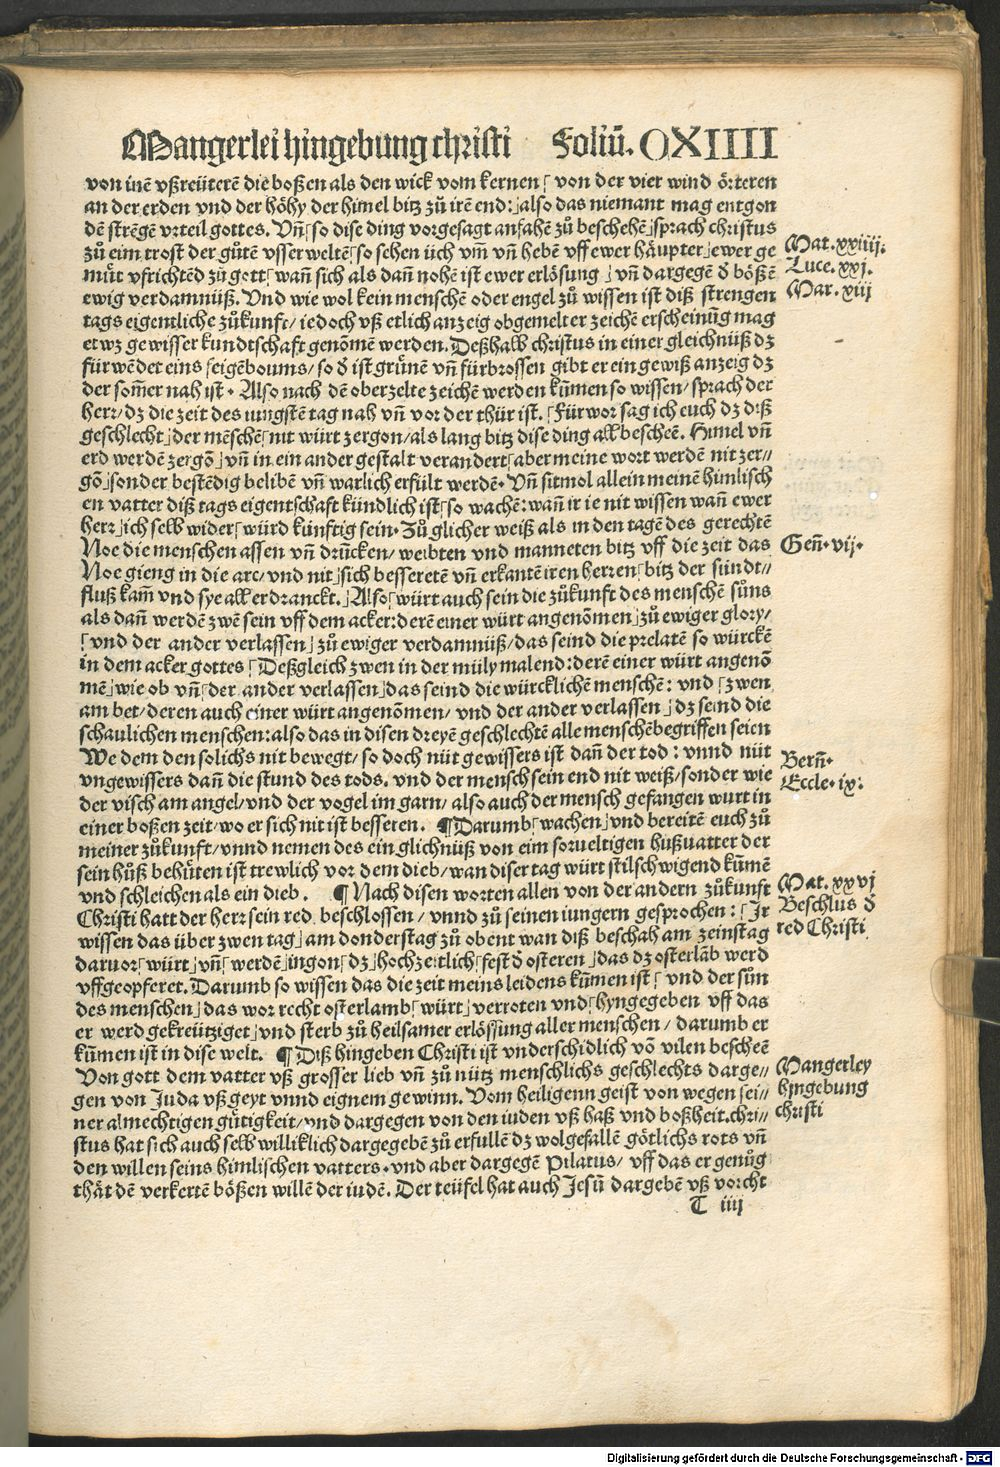 Mangerlei hingebung christi Foliū. OXIIII
von inē vßreüterē die boßen als den wick vom kernen⸢ von der vier wind örteren
an der erden vnd der höhy der himel bitz zů irē end:⸥also das niemant mag entgon
dē strēgē vrteil gottes. Vñ⸢so dise ding vorgesagt anfahē zů beschehē⸥sprach christus
zů eim trost der gůtē vsserweltē⸢so sehen üch vm̄ vñ hebē vff ewer häupter⸥ewer ge
Mat. xxiiij.
müt vfrichtēd zů gott⸢wañ sich als dañ nohē ist ewer erlösung⸥vñ dargegē d̄ bößē
Luce. xxj.
ewig verdamnüß. Vnd wie wol kein menschē oder engel zů wissen ist diß strengen
Mar. xiij
tags eigentliche zůkunft/ iedoch vß etlich anzeig obgemelter zeichē erscheinūg mag
etwz gewisser kundtschaft genōmē werden. Deßhalb christus in einer gleichnüß dz
fürwēdet eins feigēboums/ so d̄ ist grünēn vñ fürbrossen gibt er ein gewiß anzeig dz
der som̄er nah ist. Also nach dē oberzelte zeichē werden kūmen so wissen/ sprach der
herr/ dz die zeit des iungstē tag nah vñ vor der thür ist.⸢Fürwor sag ich euch dz diß
geschlecht⸥der mēschē⸢nit würt zergon/als lang bitz dise ding all bescheē. Himel vñ
erd werdē zergō⸥vñ in ein ander gestalt verandert⸢aber meine wort werdē nit zer-
gō⸥sonder bestēdig belibē vñ warlich erfült werdē. Vñ sitmol allein meinē himlisch
en vatter diß tags eigentschaft kündlich ist⸢so wachē: wañ ir ie nit wissen wañ ewer
herr⸥ich selb wider⸢würd künftig sein. Zů glicher weiß als in den tagē des gerechtē
Noe die menschen assen vñ drūcken/ weibten vnd manneten bitz vff die zeit das
Geñ. vij.
Noe gieng in die arc/ vnd nit⸥sich besseretē vñ erkantē iren herren⸢bitz der sündt//
fluß kam̄ vnd sye all erdranckt.⸥Also⸢würt auch sein die zůkunft des menschē sůns
als dañ werdē zwē sein vff dem acker: derē einer würt angenōmen⸥zů ewiger glory/
⸢vnd der ander verlassen⸥zů ewiger verdamnüß/ das seind die prelatē so würckē
in dem acker gottes⸢Deßgleich zwen in der müly malend: derē einer würt angenō
mē⸥wie ob vñ⸢der ander verlassen⸥das seind die würcklichē menschē: vnd⸢zwen
am bet/ deren auch einer würt angenōmen/ vnd der ander verlassen⸥dz seind die
schaulichen menschen: also das in disen dreyē geschlechtē alle menschē begriffen seien
We dem den solichs nit bewegt/ so doch nüt gewissers ist dañ der tod: vnnd nüt
Berñ.
vngewissers dañ die stund des tods. vnd der mensch sein end nit weiß/ sonder wie
Eccle. ix:
der visch am angel/ vnd der vogel im garn/ also auch der mensch gefangen wurt in
einer boßen zeit/ wo er sich nit ist besseren. ¶Darumb⸢wachen⸥vnd bereitē euch zů
meiner zůkunft/ vnnd nemen des ein glichnüß von eim sorueltigen hußuatter der
sein hůß behüten ist trewlich vor dem dieb/ wan diser tag würt stilschwigend kūmē
vnd schleichen als ein dieb. ¶Nach disen worten allen von der andern zůkunft
Mat. xxvj
Christi hatt der herr sein red beschlossen/ vnnd zů seinen iungern gesprochen:⸢Ir
Beschlus d̄
wissen das über zwen tag⸥am donderstag zů obent wan diß beschah am zeinstag
red Christi
daruor⸢würt⸥vñ⸢werdē⸥ingon⸢dz⸥hochzeitlich⸢fest d̄ osteren⸥das dz osterlāb werd
vffgeopferet. Darumb so wissen das die zeit meins leidens kūmen ist⸢vnd der sůn
des menschen⸥das wor recht osterlamb⸢würt⸥verroten vnd⸢hyngegeben vff das
er werd gekreütziget⸥vnd sterb zů heilsamer erlössung aller menschen/ darumb er
kūmen ist in dise welt. ¶Diß hingeben Christi ist vnderschidlich vō vilen bescheē
Von gott dem vatter vß grosser lieb vñ zů nütz menschlichs geschlechts darge//
Mangerley
gen von Juda vß geyt vnnd eignem gewinn. Vom heiligenn geist von wegen sei//
hyngebung
ner almechtigen gütigkeit/ vnd dargegen von den iuden vß haß vnd boßheit. chri//
christi
stus hat sich auch selb williklich dargegebē zů erfullē dz wolgefallē götlichs rots vñ
den willen seins himlischen vatters. vnd aber dargegē Pilatus/ vff das er genůg
thät dē verkertē bößen willē der iudē. Der teüfel hat auch Jesū dargebē vß vorcht
T iiij
Digitalisierung gefördert durch die Deutsche Forschungsgemeinschaft - DFG